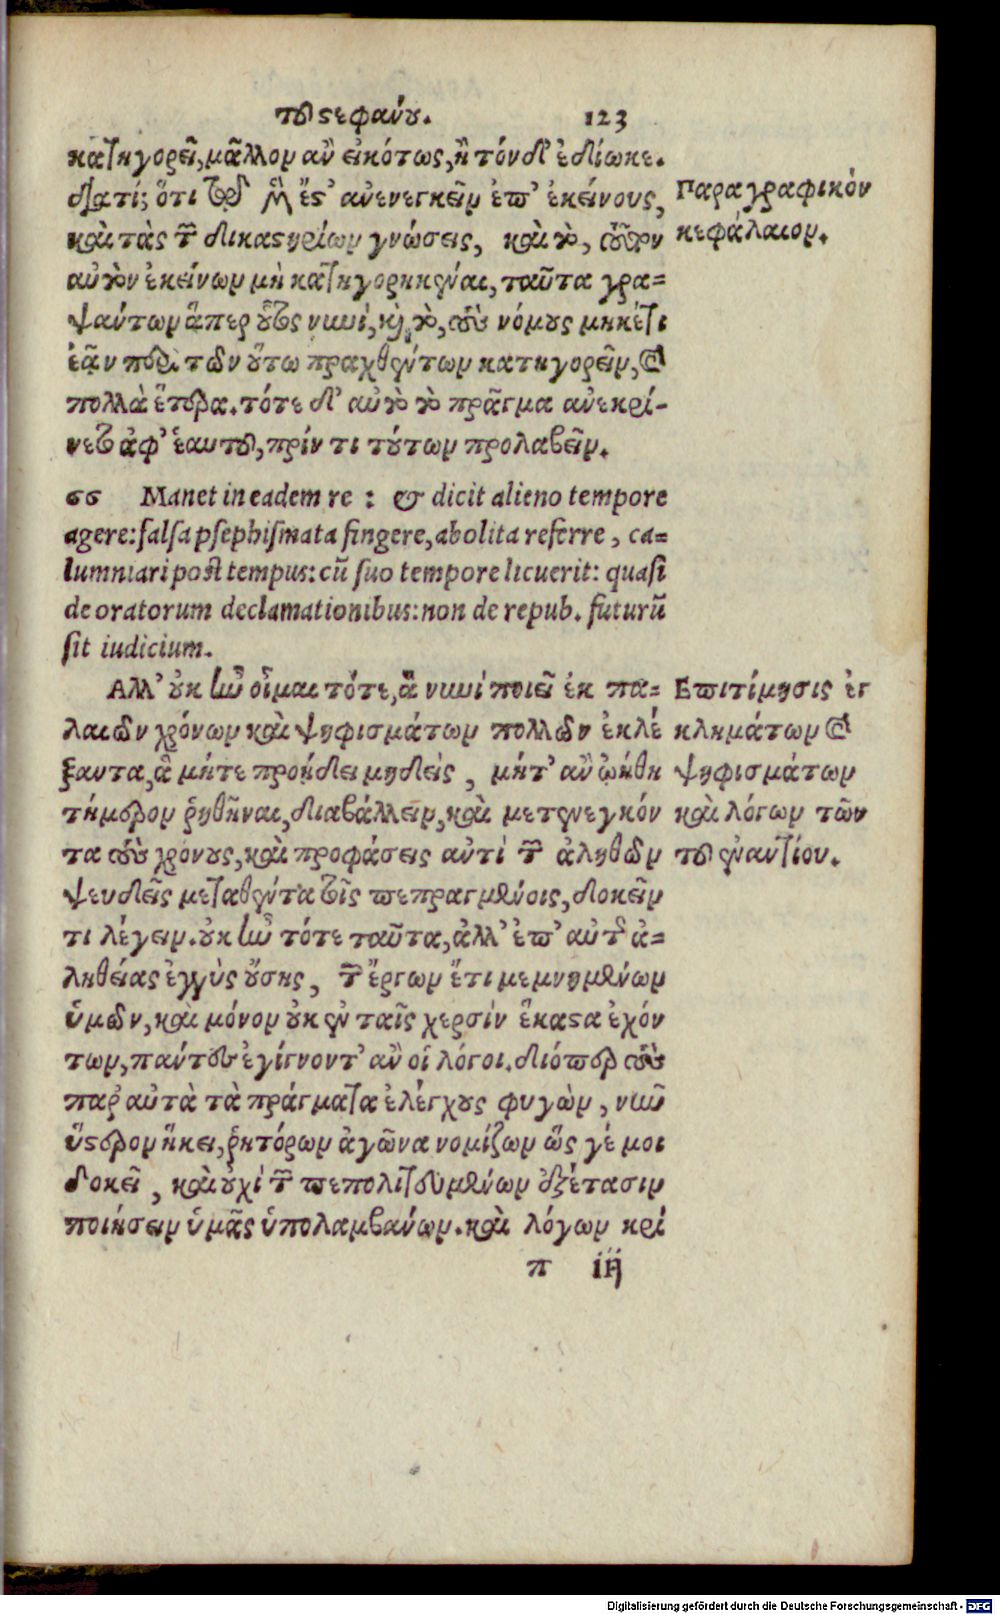 τοῦ στεφάνου. 123
κατηγορεῖ, μᾶλλον ἂν εἰκότως, ἢ τόνδ' ἐδίωκε.
διατί; ὅτι τῶν μὲν ἔστ' ἀνενεγκεῖν ἐπ' ἐκείνους,
καὶ τὰς τῶν δικαστηρίων γνώσεις, καὶ τὸ, τοῦτον
αὐτὸν ἐκείνων μὴ κατηγορηκέναι, ταῦτα γρα=
ψάντων ἅπερ οὗτος νυνί, καὶ τὸ, τοὺς νόμους μηκέτι
ἐᾶν περὶ τῶν οὕτω πραχθέντων κατηγορεῖν, καὶ
πολλὰ ἕτερα. τότε δ' αὐτὸ τὸ πρᾶγμα ἀνεκρί-
νετο ἀφ' ἑαυτοῦ, πρίν τι τούτων προλαβεῖν.
Παραγραφικὸν
κεφάλαιον.
66 Manet in eadem re : & dicit alieno tempore
agere: falsa psephismata fingere, abolita referre, ca=
lumniari post tempus: cū suo tempore licuerit: quasi
de oratorum declamationibus: non de repub. futurū
sit iudicium.
Ἀλλ' οὐκ ἦν οἶμαι τότε, ἃ νυνὶ ποιεῖ ἐκ πα=
λαιῶν χρόνων καὶ ψηφισμάτων πολλῶν ἐκλέ
ξαντα, ἃ μήτε προῄδει μηδεὶς, μήτ' ἂν ᾠήθη
τήμερον ῥηθῆναι, διαβάλλειν, καὶ μετενεγκόν
τα τοὺς χρόνους, καὶ προφάσεις ἀντὶ τῶν ἀληθῶν
ψευδεῖς μεταθέντα τοῖς πεπραγμένοις, δοκεῖν
τι λέγειν. οὐκ ἦν τότε ταῦτα, ἀλλ' ἐπ' αὐτῆς ἀ=
ληθείας ἐγγὺς οὔσης, τῶν ἔργων ἔτι μεμνημένων
ὑμῶν, καὶ μόνον οὐκ ἐν ταῖς χερσὶν ἕκαστα ἐχόν
των, πάντες ἐγίγνοντ' ἂν οἱ λόγοι. διόπερ τοὺς
παρ' αὐτὰ τὰ πράγματα ἐλέγχους φυγὼν, νῦν
ὕστερον ἥκει, ῥητόρων ἀγῶνα νομίζων ὥς γέ μοι
δοκεῖ, καὶ οὐχὶ τῶν πεπολιτευμένων ἐξέτασιν
ποιήσειν ὑμᾶς ὑπολαμβάνων. καὶ λόγων κρί
Ἐπιτίμησις ἐγ
κλημάτων καὶ
ψηφισμάτων
καὶ λόγων τῶν
τοῦ ἐναντίου.
π iij
Digitalisierung gefördert durch die Deutsche Forschungsgemeinschaft - DFG